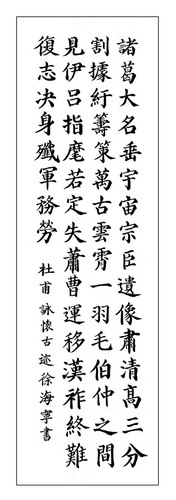 諸葛大名垂宇宙宗臣遺像肅清髙三分
割據紆籌策萬古雲霄一羽毛伯仲之間
見伊呂指麾若定失蕭曹運移漢祚終難
復志决身殲軍務勞 杜甫 詠懷古迹 徐海寧書